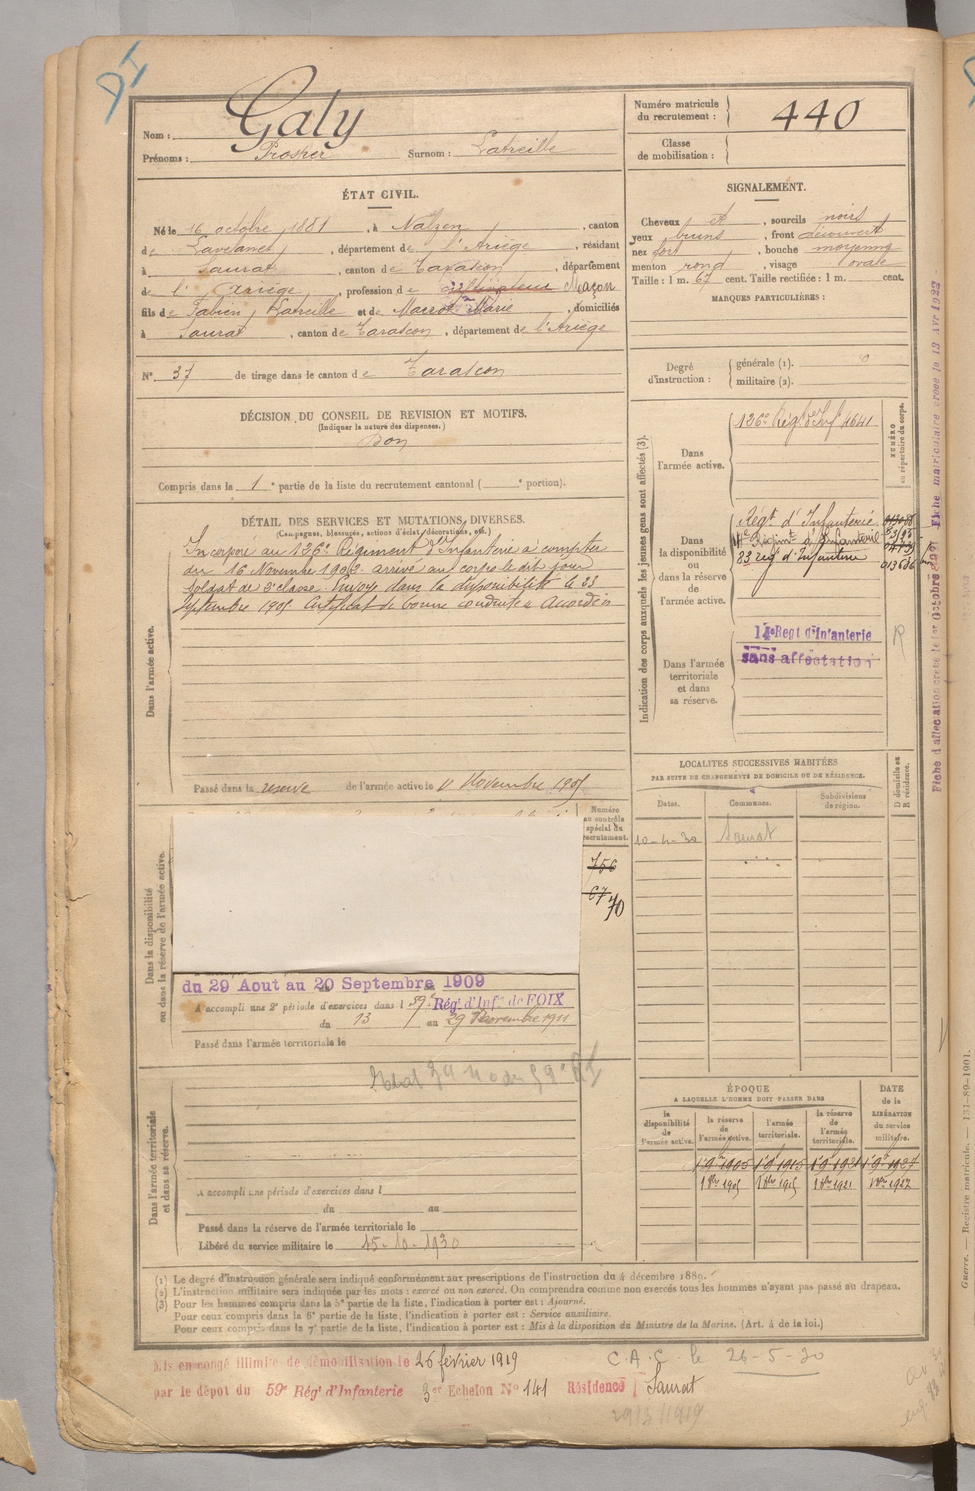 Nom : Galy
Prénoms : Prosper Surnom : Latreille
Numéro matricule du recrutement : 440
Classe de mobilisation :
ÉTAT CIVIL.
Né le 16 octobre 1881, à Nalzen, canton
de Lavelanet, département de l'Ariège, résidant
à Saurat, canton de Tarascon, département
de l'Ariège, profession de cultivateur Maçon
fils de Fabien, Latreille et de Marie, domiciliés
à Saurat, canton de Tarascon, département de l'Ariège
N° 37 de tirage dans le canton de Tarascon
SIGNALEMENT.
Cheveux et, sourcils noirs
yeux bruns, front découvert
nez fort, bouche moyenne
menton rond, visage ovale
Taille : 1 m. 67 cent. Taille rectifiée : 1 m. cent.
MARQUES PARTICULIÈRES :
Degré d'instruction : générale (1).
militaire (2).
DÉCISION DU CONSEIL DE REVISION ET MOTIFS.
(Indiquer la nature des dispenses.)
Bon
Compris dans la 1e partie de la liste du recrutement cantonal ( e portion).
DÉTAIL DES SERVICES ET MUTATIONS DIVERSES.
(Campagnes, blessures, actions d'éclat, décorations, etc.)
Dans l'armée active.
Incorporé au 126e Régiment d'Infanterie à compter
du 16 Novembre 1902 arrivé au corps le dit jour
soldat de 2e classe. Envoyé dans la disponibilité le 23
Septembre 1905. Certificat de bonne conduite accordé
Passé dans la réserve de l'armée active le 1 Novembre 1905
Indication des corps auxquels les jeunes gens sont affectés (3).
NUMÉRO au répertoire du corps.
Dans l'armée active.
126e Régt d'Inf 4641
Dans la disponibilité ou dans la réserve de l'armée active.
Régt d'Infanterie
Régiment d'Infanterie
83 rég d'Infanterie
Dans l'armée territoriale et dans sa réserve.
14e Regt d'Infanterie
sans affectation
LOCALITÉS SUCCESSIVES HABITÉES
PAR SUITE DE CHANGEMENTS DE DOMICILE OU DE RÉSIDENCE.
Dates. Communes. Subdivisions de région. D domicile ou R résidence.
10-4-30 Saurat
Dans la disponibilité ou dans la réserve de l'armée active.
Numéro au contrôle spécial du recrutement.
756
67
70
du 29 Aout au 20 Septembre 1909
A accompli une 2e période d'exercices dans l 59e Régt d'Infie de FOIX
du 13 au 29 Novembre 1911
Passé dans l'armée territoriale le
Dans l'armée territoriale et dans sa réserve.
A accompli une période d'exercices dans l
du au
Passé dans la réserve de l'armée territoriale le
Libéré du service militaire le 15-10-1930
ÉPOQUE
A LAQUELLE L'HOMME DOIT PASSER DANS
DATE de la LIBÉRATION du service militaire.
la disponibilité de l'armée active. la réserve de l'armée active. l'armée territoriale. la réserve de l'armée territoriale.
(1) Le degré d'instruction générale sera indiqué conformément aux prescriptions de l'instruction du 4 décembre 1889.
(2) L'instruction militaire sera indiquée par les mots : exercé ou non exercé. On comprendra comme non exercés tous les hommes n'ayant pas passé au drapeau.
(3) Pour les hommes compris dans la 5e partie de la liste, l'indication à porter est : Ajourné.
Pour ceux compris dans la 6e partie de la liste, l'indication à porter est : Service auxiliaire.
Pour ceux compris dans la 7e partie de la liste, l'indication à porter est : Mis à la disposition du Ministre de la Marine. (Art. 4 de la loi.)
Mis en congé illimité de démobilisation le 26 février 1919
par le dépot du 59e Régt d'Infanterie 3er Echelon N° 141 Résidence Saurat
C.A.C. le 26-5-30
Guerre. — Registre matricule. — 131-89-1901.